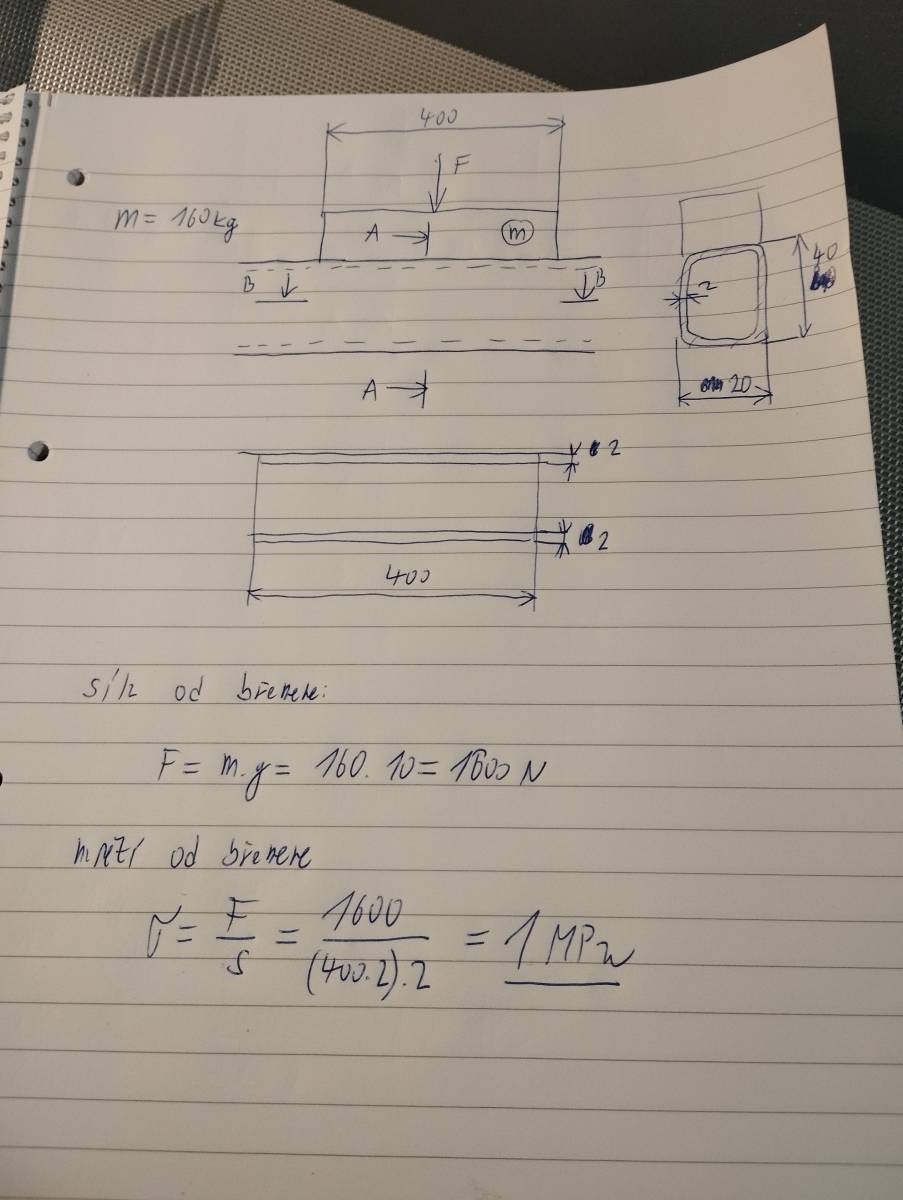 400
F
m = 160kg
A
m
B
B
2
40
A
20
2
2
400
síla od břemene:
F = m.g = 160.10 = 1600 N
napětí od břemene
σ = F/S = 1600/(400.2).2 = 1 MPa